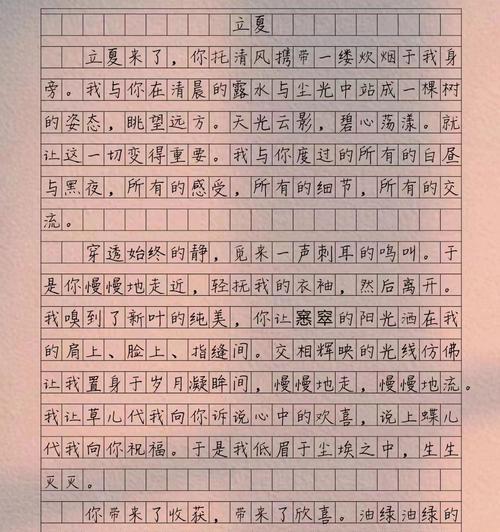 立夏
立夏来了，你托清风携带一缕炊烟于我身
旁。我与你在清晨的露水与尘光中站成一棵树
的姿态，眺望远方。天光云影，碧心荡漾。就
让这一切变得重要。我与你度过的所有的白昼
与黑夜，所有的感受，所有的细节，所有的交
流。
穿透始终的静，觅来一声刺耳的鸣叫。于
是你慢慢地走近，轻抚我的衣袖，然后离开。
我嗅到了新叶的纯美，你让窸窣的阳光洒在我
的肩上、脸上、指缝间。交相辉映的光线仿佛
让我置身于岁月凝眸间，慢慢地走，慢慢地流。
我让草儿代我向你诉说心中的欢喜，说上蝶儿
代我向你祝福。于是我低眉于尘埃之中，生生
灭灭。
你带来了收获，带来了欣喜。油绿油绿的